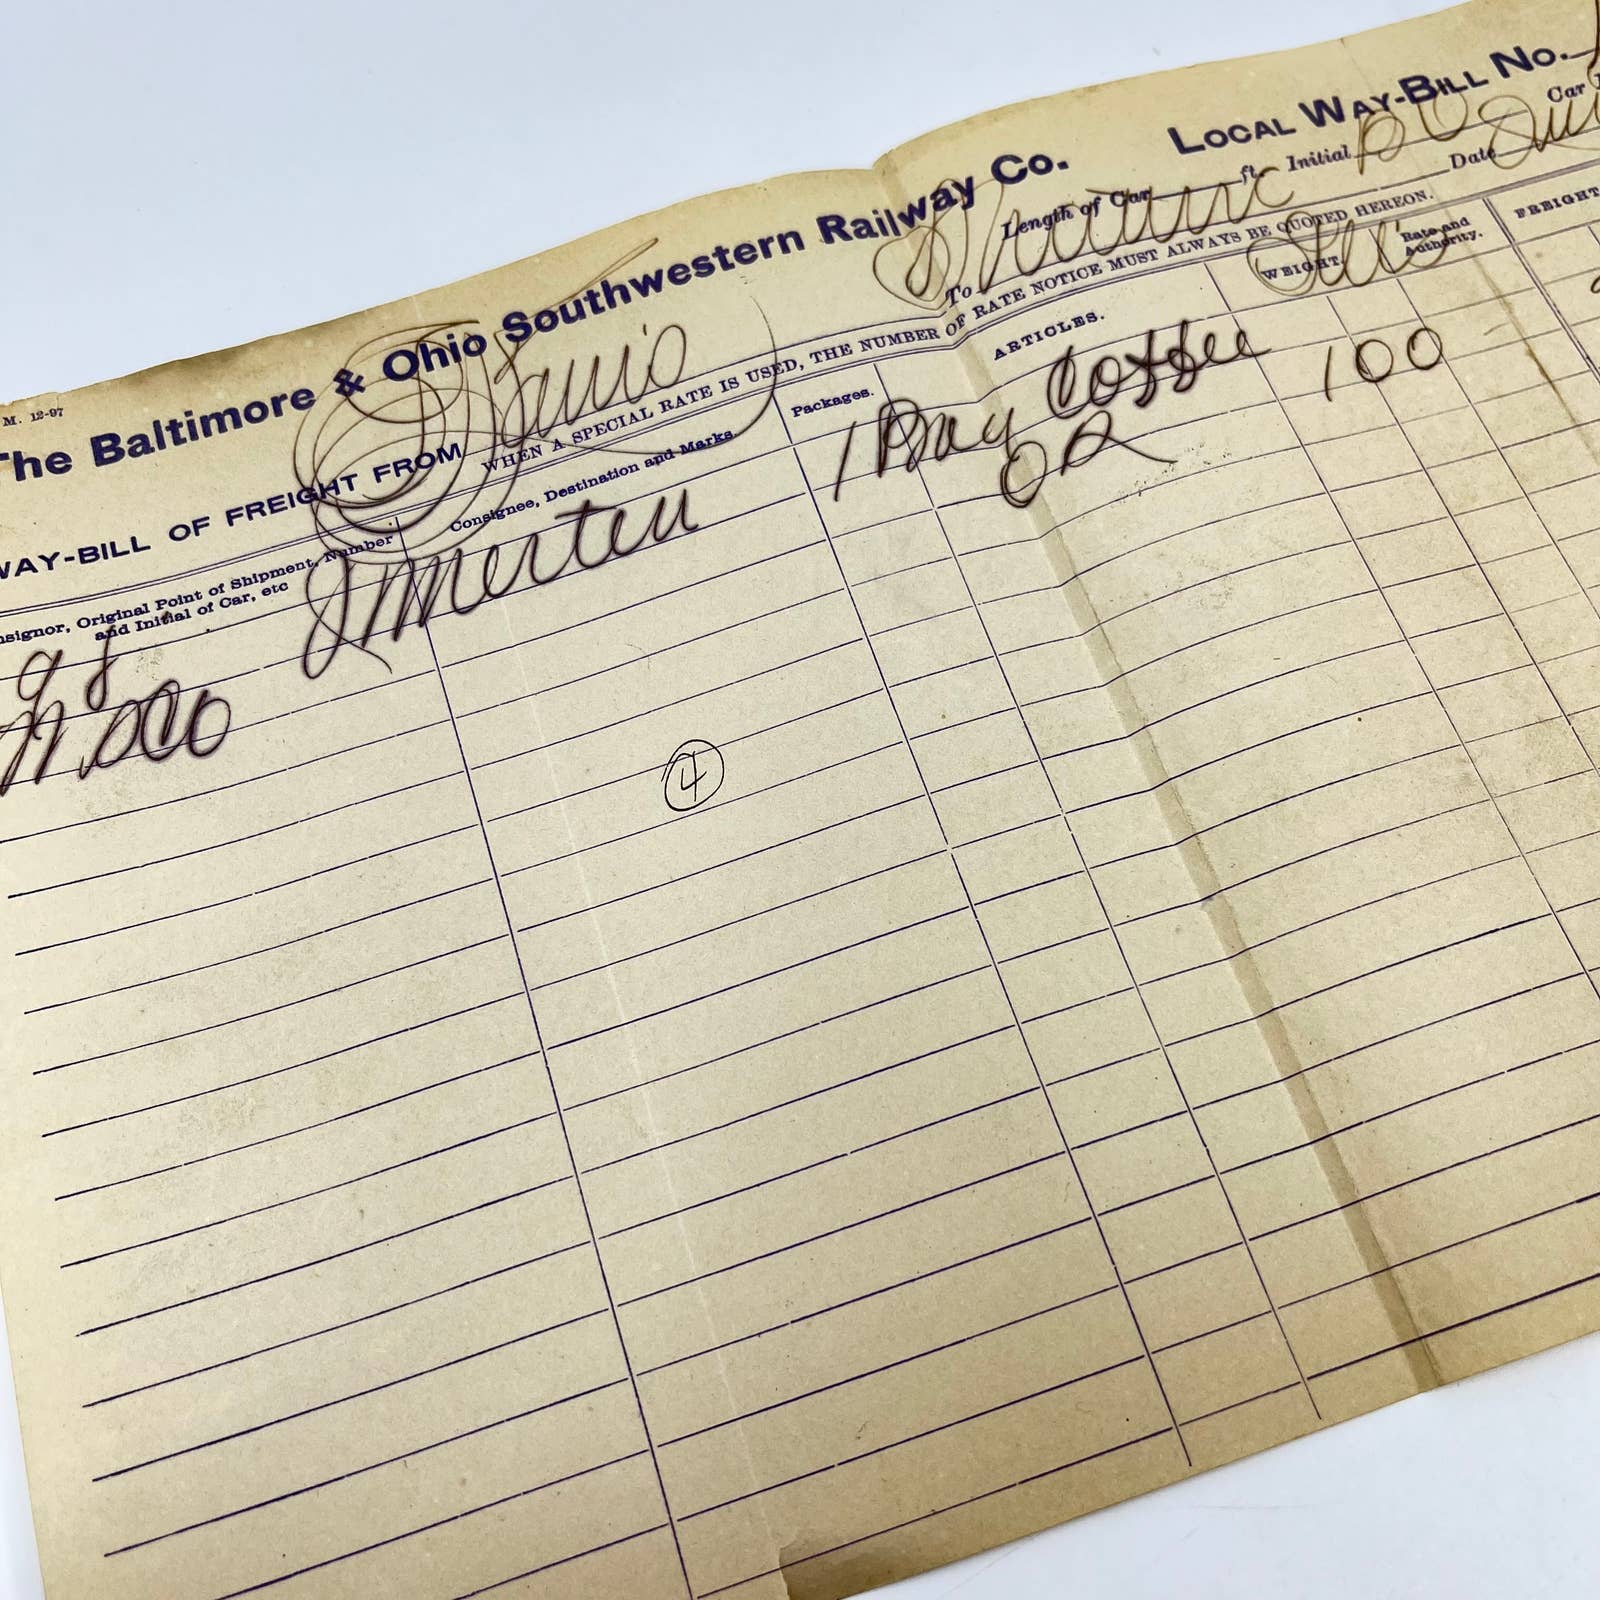 M. 12-97
The Baltimore & Ohio Southwestern Railway Co.
LOCAL WAY-BILL No.
Length of Car ft. Initial Car
WAY-BILL OF FREIGHT FROM To Date
WHEN A SPECIAL RATE IS USED, THE NUMBER OF RATE NOTICE MUST ALWAYS BE QUOTED HEREON.
nsignor, Original Point of Shipment, Number
and Initial of Car, etc
Consignee, Destination and Marks
Packages.
ARTICLES.
WEIGHT.
Rate and
Authority.
FREIGHT
J Merten 1 Bag Coffee 100
OR
4